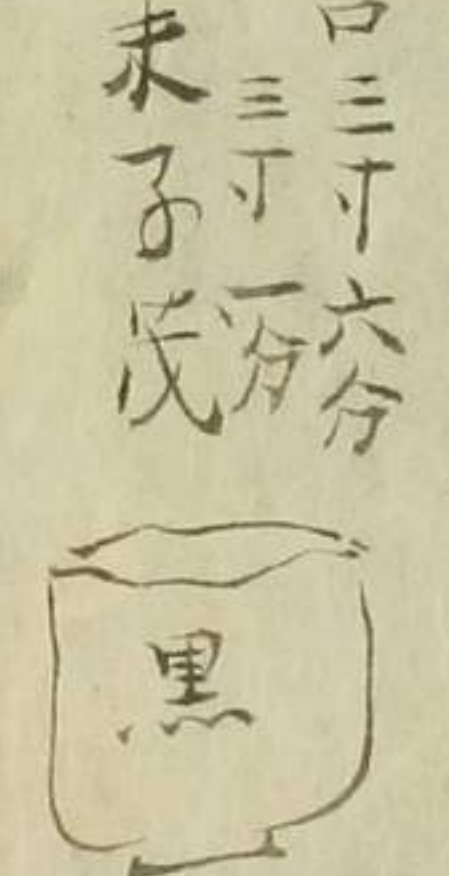 口三寸六分
三寸一分
未子茂
黒